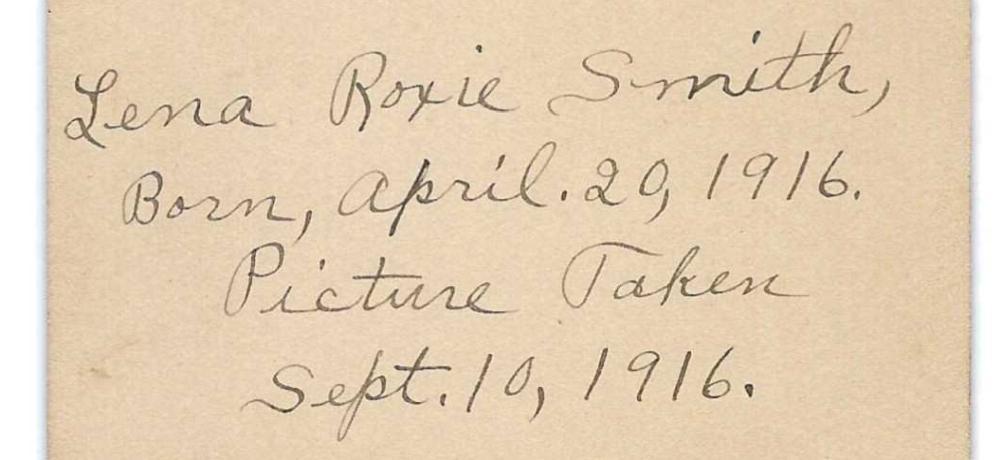 Lena Roxie Smith,
Born, April. 20, 1916.
Picture Taken
Sept. 10, 1916.